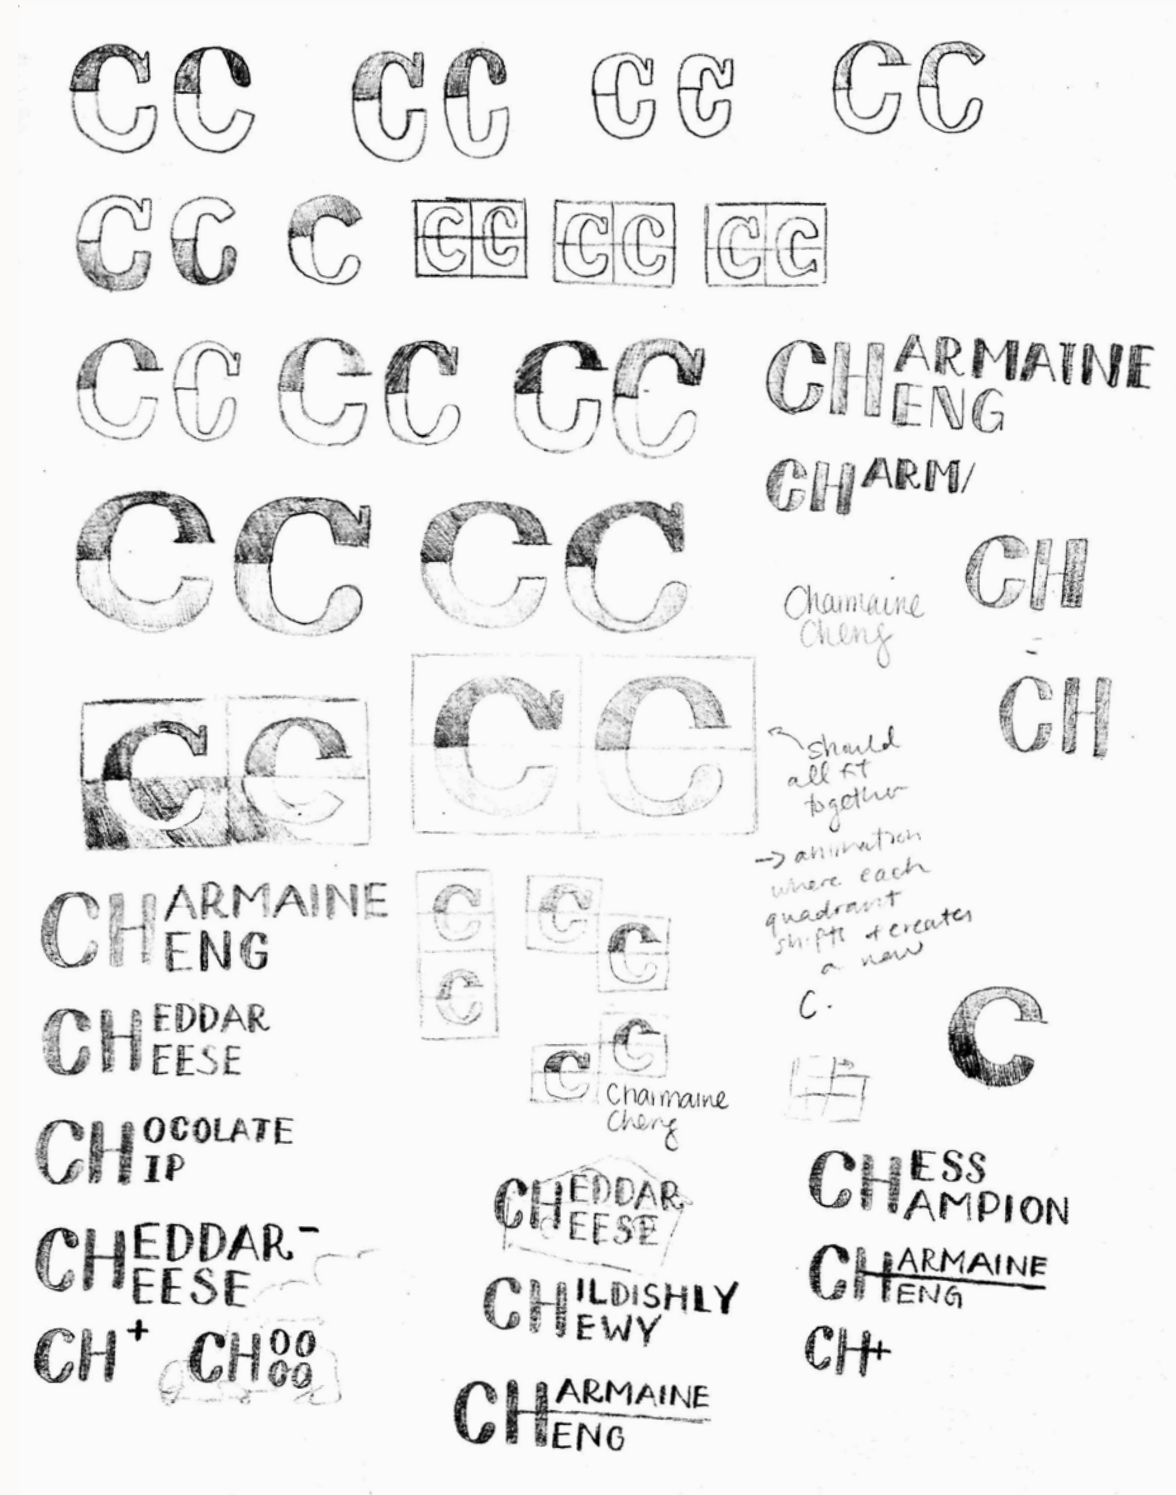 CC CC CC CC
CC C CC CC CC
CC CC CC
CHARMAINE
ENG
CHARM/
CC CC
CH
Charmaine
Cheng
=
CH
CC CC
should
all fit
together
→ animation
where each
quadrant
shifts + creates
a new
C.
CHARMAINE
ENG
C
C
C
C
C
C
Charmaine
Cheng
C
CHEDDAR
EESE
CHOCOLATE
IP
CHEDDAR-
EESE
CH+ CHOO
OO
CHEDDAR
EESE
CHILDISHLY
EWY
CHARMAINE
ENG
CHESS
AMPION
CHARMAINE
ENG
CH+